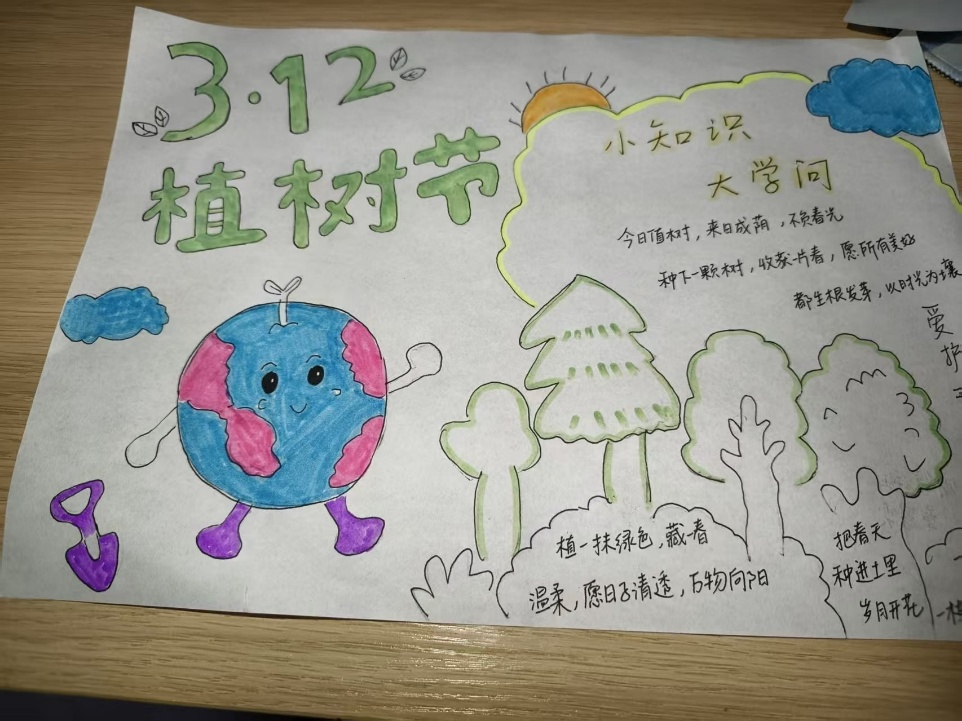 3·12
植树节
小知识
大学问
今日值树，来日成荫，不负春光
种下一颗树，收获一片春，愿所有美好
都生根发芽，以时光为壤
爱
护
植一抹绿色，藏一春
温柔，愿日子清透，万物向阳
把春天
种进土里
岁月开花